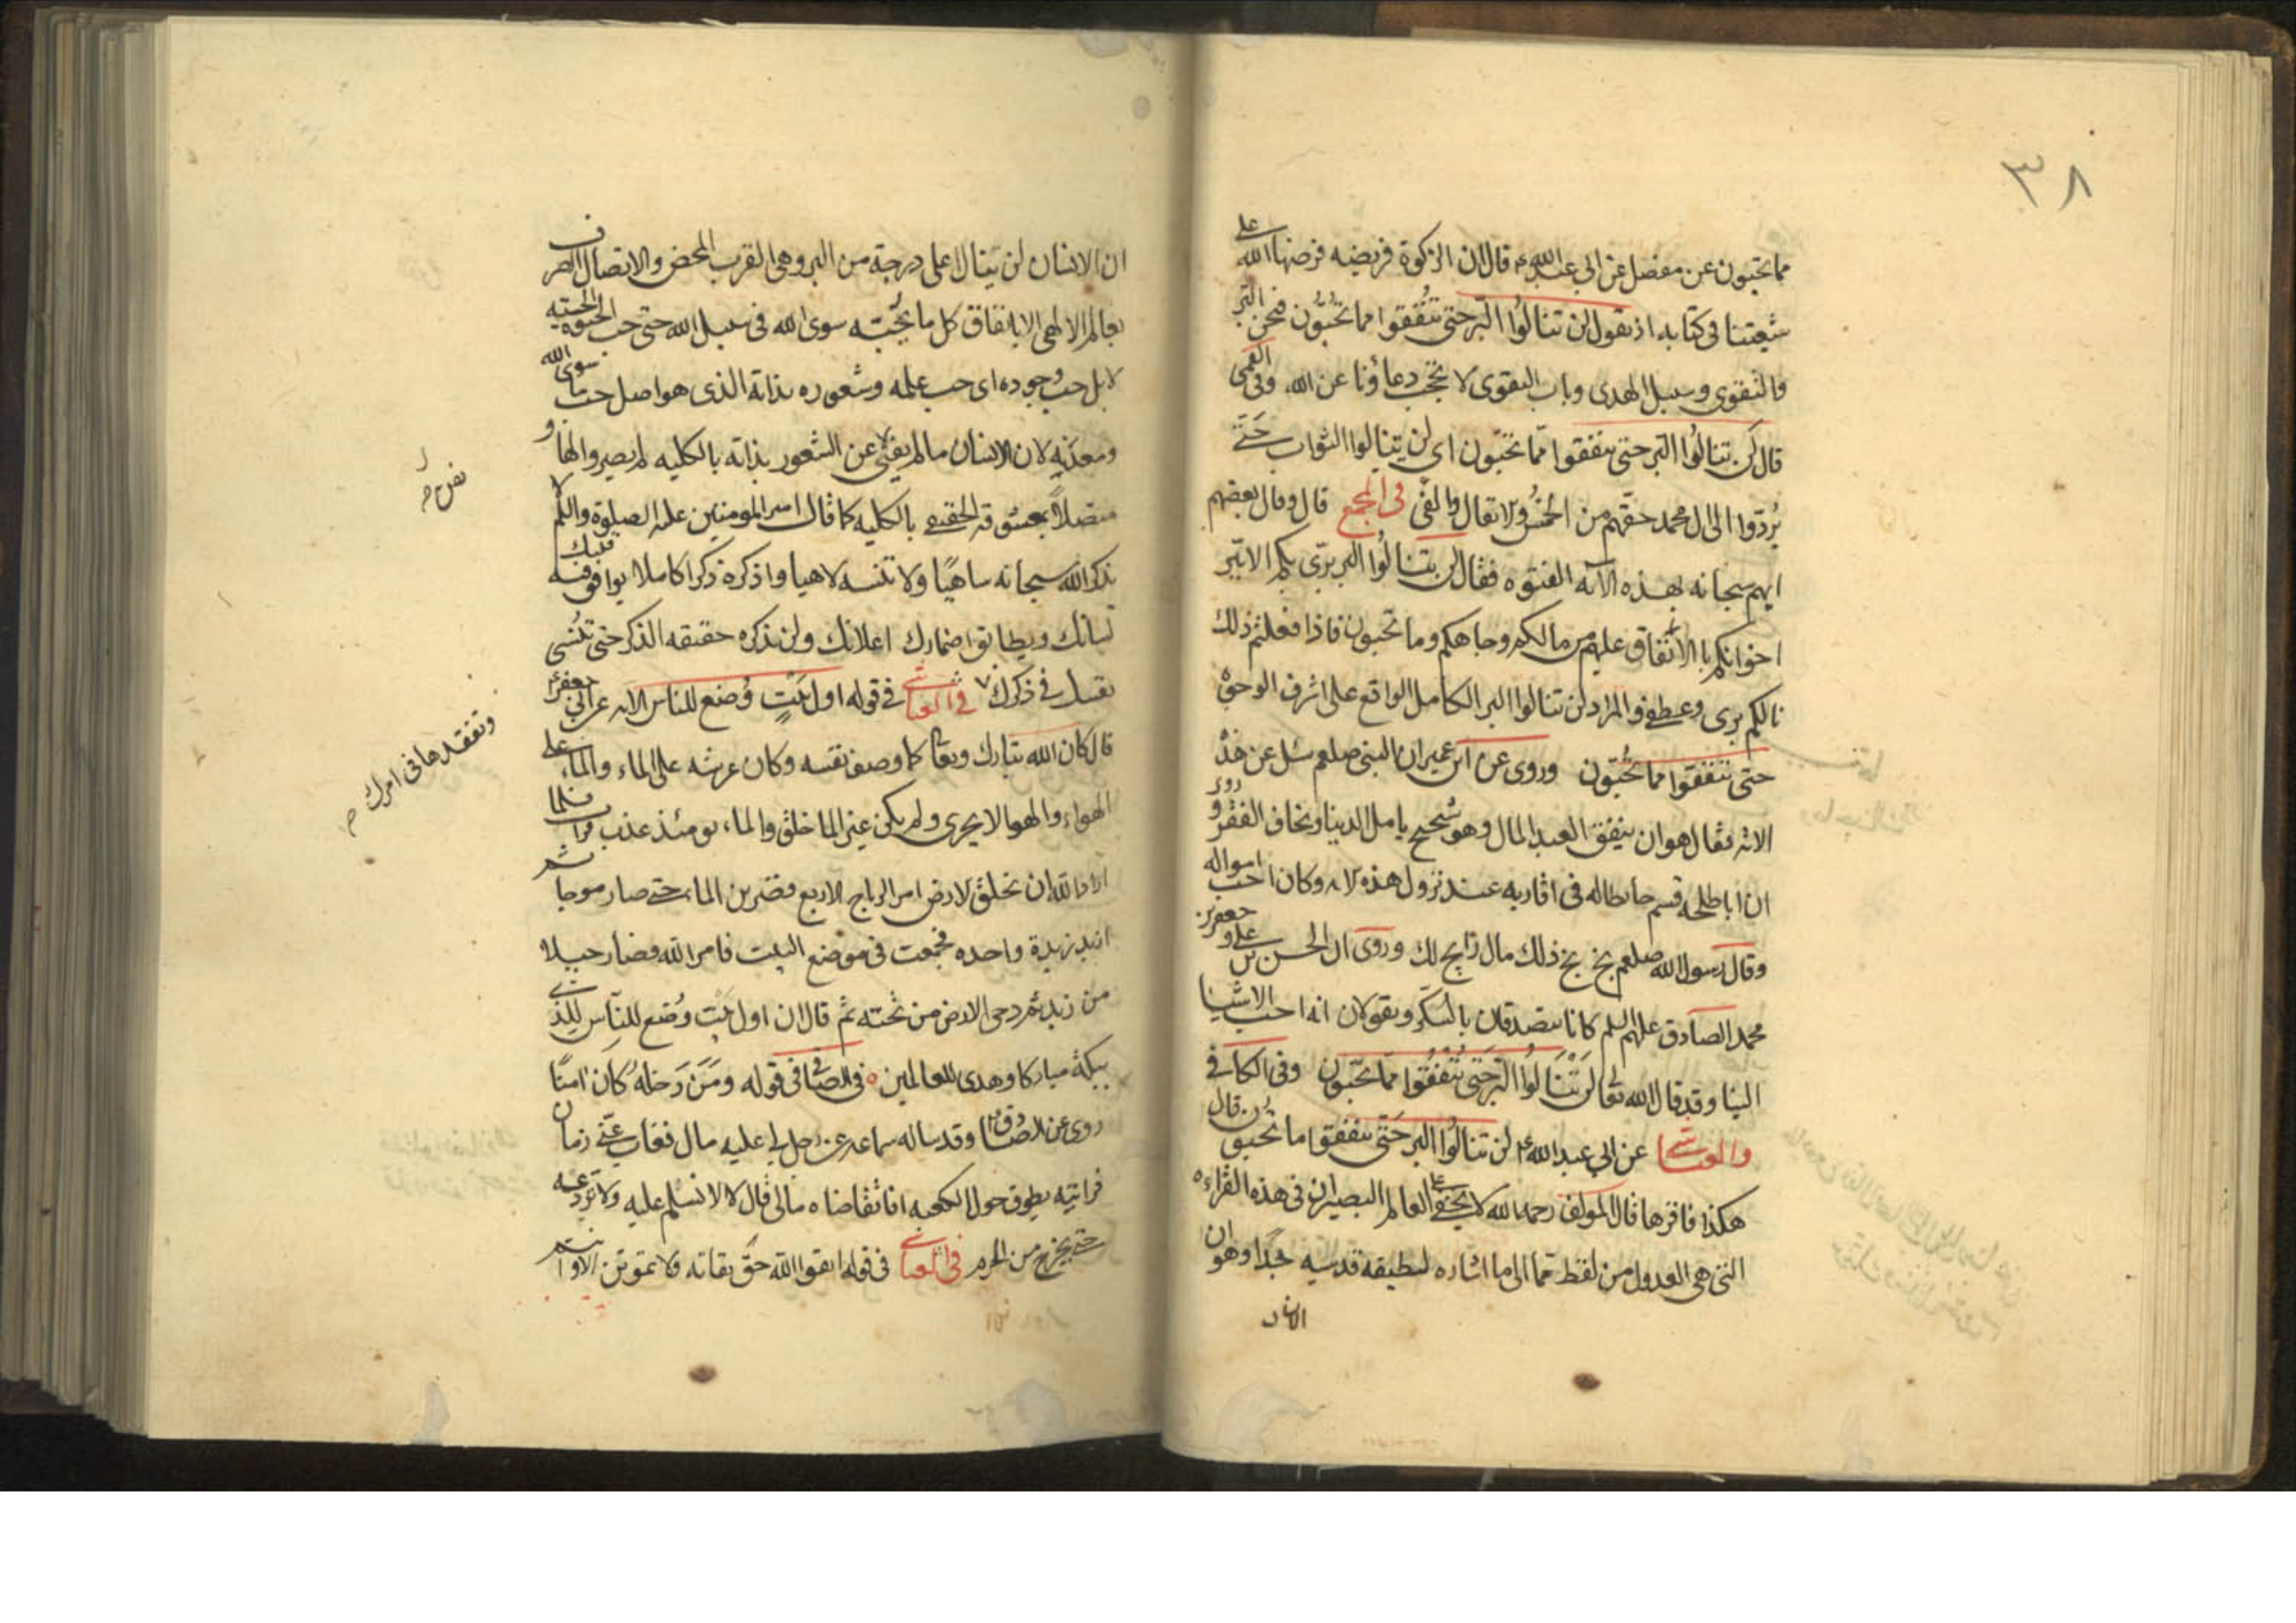 ٣٨
مما تحبون عن مفضل عن ابي عبد الله ع قال ان الزكوة فريضه فرضها الله على
شيعتنا في كتابه اذ يقول لن تنالوا البر حتى تنفقوا مما تحبون فنحن البر
والتقوى وسبيل الهدى وباب التقوى لا يحجب دعاؤنا عن الله وفي القمي
قال لن تنالوا البر حتى تنفقوا مما تحبون اي لن ينالوا الثواب حتى
يردوا الى ال محمد حقهم من الخمس والانفال والفئ في المجمع قال وقال بعضهم
ابهم سبحانه بهذه الآيه الفتوه فقال لن تنالوا البر بري بكم الا ببر
اخوانكم با الانفاق عليهم من مالكم وجاهكم وما تحبون فاذا فعلتم ذلك
نالكم بري وعطفي والمراد لن تنالوا البر الكامل الواقع على اشرف الوجوه
حتى تنفقوا مما تحبون وروي عن ابن عمر ان النبي صلعم سئل عن هذه
الايه فقال هو ان ينفق العبد المال وهو شحيح يامل الدنيا ويخاف الفقر وروى
ان ابا طلحه قسم حائطا له في اقاربه عند نزول هذه الايه وكان احب امواله
وقال رسول الله صلعم بخ بخ ذلك مال رابح لك وروى ان الحسن بن على وجعفر بن
محمد الصادق عليهم السلم كانا يتصدقان بالسكر ويقولان انه احب الاشيا
الينا وقد قال الله تعالى لن تنالوا البر حتى تنفقوا مما تحبون وفي الكافي
والعياشي عن ابي عبد الله ع لن تنالوا البر حتى تنفقوا ما تحبون قال
هكذا فاقرها قال المؤلف رحمه الله لا يخفى على العالم البصير ان في هذه القراءه
التي هي العدول من لفظ مما الى ما اشاره لطيفه قدسيه جدا وهو ان
الانسان
ان الانسان لن ينال اعلى درجة من البر وهي القرب المحض والاتصال الصرف
بعالم الالهي الا بانفاق كل ما يحبه سوى الله في سبيل الله حتى حب الحيوه الحسيه
لا بل حب وجوده اى حب علمه وشعوره بذاته الذى هو اصل حب ما سوى الله
لان الانسان ما لم يفنى عن الشعور بذاته بالكليه لم يصير والها و
متصلا بعشوقه الحقيقي بالكليه كما قال امير المومنين عليه الصلوة والسلم لا
تذكر الله سبحانه ساهيا ولا تنسه لاهيا واذكره ذكرا كاملا يوافق فيه قلبك
لسانك ويطابق اضمارك اعلانك ولن تذكره حقيقه الذكر حتى تنسى
نفسك في ذكرك في العياشي في قوله اول بيت وضع للناس الايه عن ابي جعفر ع
قال كان الله تبارك وتعالى كما وصف نفسه وكان عرشه على الماء والماء على
الهواء والهوا لا يجرى ولم يكن غير الما خلق والماء يومئذ عذب فرات فلما
اراد الله ان يخلق الارض امر الرياح الاربع فضربن الماء حتى صار موجا ثم
ازبد زبدة واحده فجمعت في موضع البيت فامر الله فصار جبلا
من زبد ثم دحى الارض من تحته ثم قال ان اول بيت وضع للناس للذي
ببكة مباركا وهدى للعالمين في الصافي في قوله ومن دخله كان امنا
روى عن الصادق ع وقد ساله سماعه عن رجل لي عليه مال فغاب عني زمان
فرايته يطوف حول الكعبه افاتقاضاه مالى قال لا لا تسلم عليه ولا تروعه
حتى يخرج من الحرم في العياشي في قوله اتقوا الله حق تقاته ولا تموتن الا وانتم
وتفقدها في امرك م